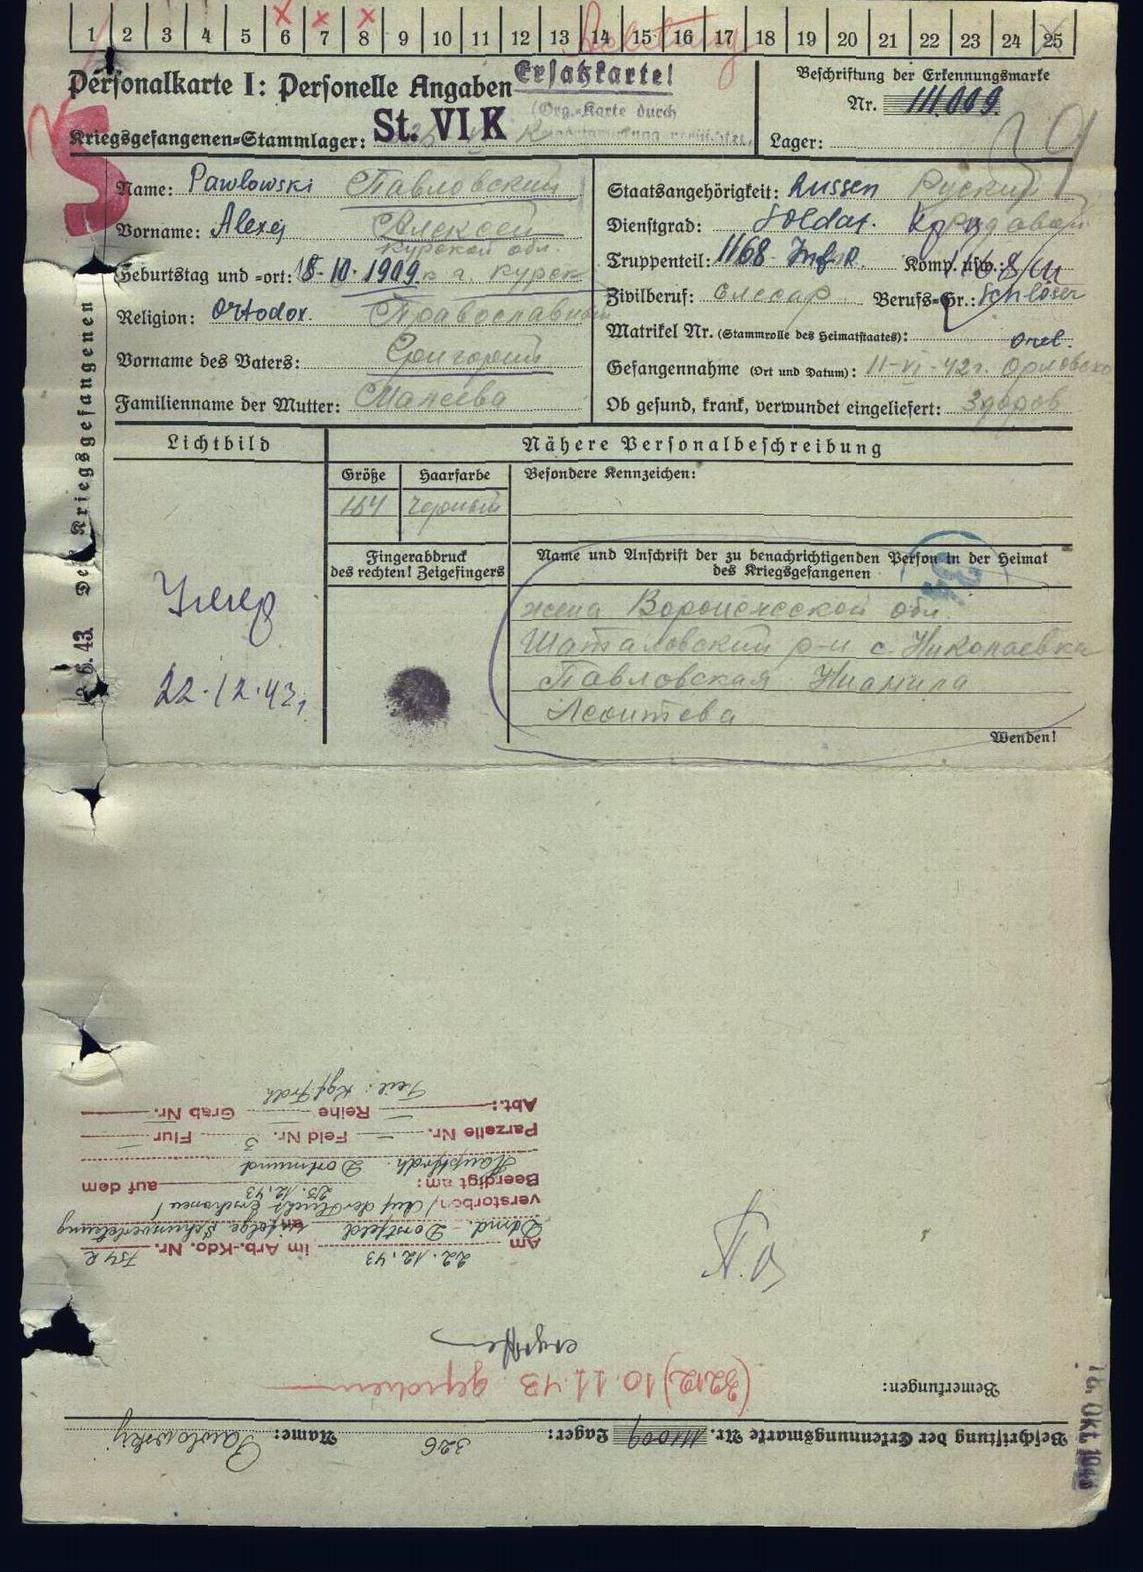 1 2 3 4 5 6 7 8 9 10 11 12 13 14 15 16 17 18 19 20 21 22 23 24 25
Personalkarte I: Personelle Angaben
Ersatzkarte!
(Org.-Karte durch
Kriegsgefangenen-Stammlager: St. VI K
Beschriftung der Erkennungsmarke
Nr. 111.009
Lager:
Name: Pawlowski Павловский
Vorname: Alexej Алексей
Курской обл.
Geburtstag und -ort: 18-10-1909 г. Курск
Religion: Ortodox. Православный
Vorname des Vaters: Григорий
Familienname der Mutter: Манеева
Staatsangehörigkeit: Russen Руский
Dienstgrad: Soldat. Рядовой
Truppenteil: 1168 Inf. R. Komp. usw.:
Zivilberuf: Слесар Berufs-Gr.: Schlosser
Matrikel Nr. (Stammrolle des Heimatstaates):
Orel.
Gefangennahme (Ort und Datum): 11-VI-42г. Орловско
Ob gesund, krank, verwundet eingeliefert: Здоров
Des Kriegsgefangenen
6.43
Lichtbild
Nähere Personalbeschreibung
Größe Haarfarbe Besondere Kennzeichen:
164 Черный
Fingerabdruck
des rechten! Zeigefingers
Name und Anschrift der zu benachrichtigenden Person in der Heimat
des Kriegsgefangenen
34
жена Воронежской обл.
Шаталовский р-н с. Николаевка
Павловская
Леонтева
Wenden!
Умер
22.12.43г.
Beschriftung der Erkennungsmarke Nr. 111009 Lager: 326 Name: Pawlowskij
Bemerkungen:
(3212) 10.11.43 gewichen
ergriffen
Am 22.12.43 im Arb.-Kdo. Nr. 754 R
Dtmd. - Dorstfeld infolge Schussverletzung
verstorben / Auf der Flucht erschossen /
Beerdigt am: 23.12.43 auf dem
Hauptfrdh. Dortmund
Parzelle Nr. — Feld Nr. 3 Flur —
Abt.: — Reihe — Grab Nr. —
Teil: Kgf. Frdh
16. OKT. 194